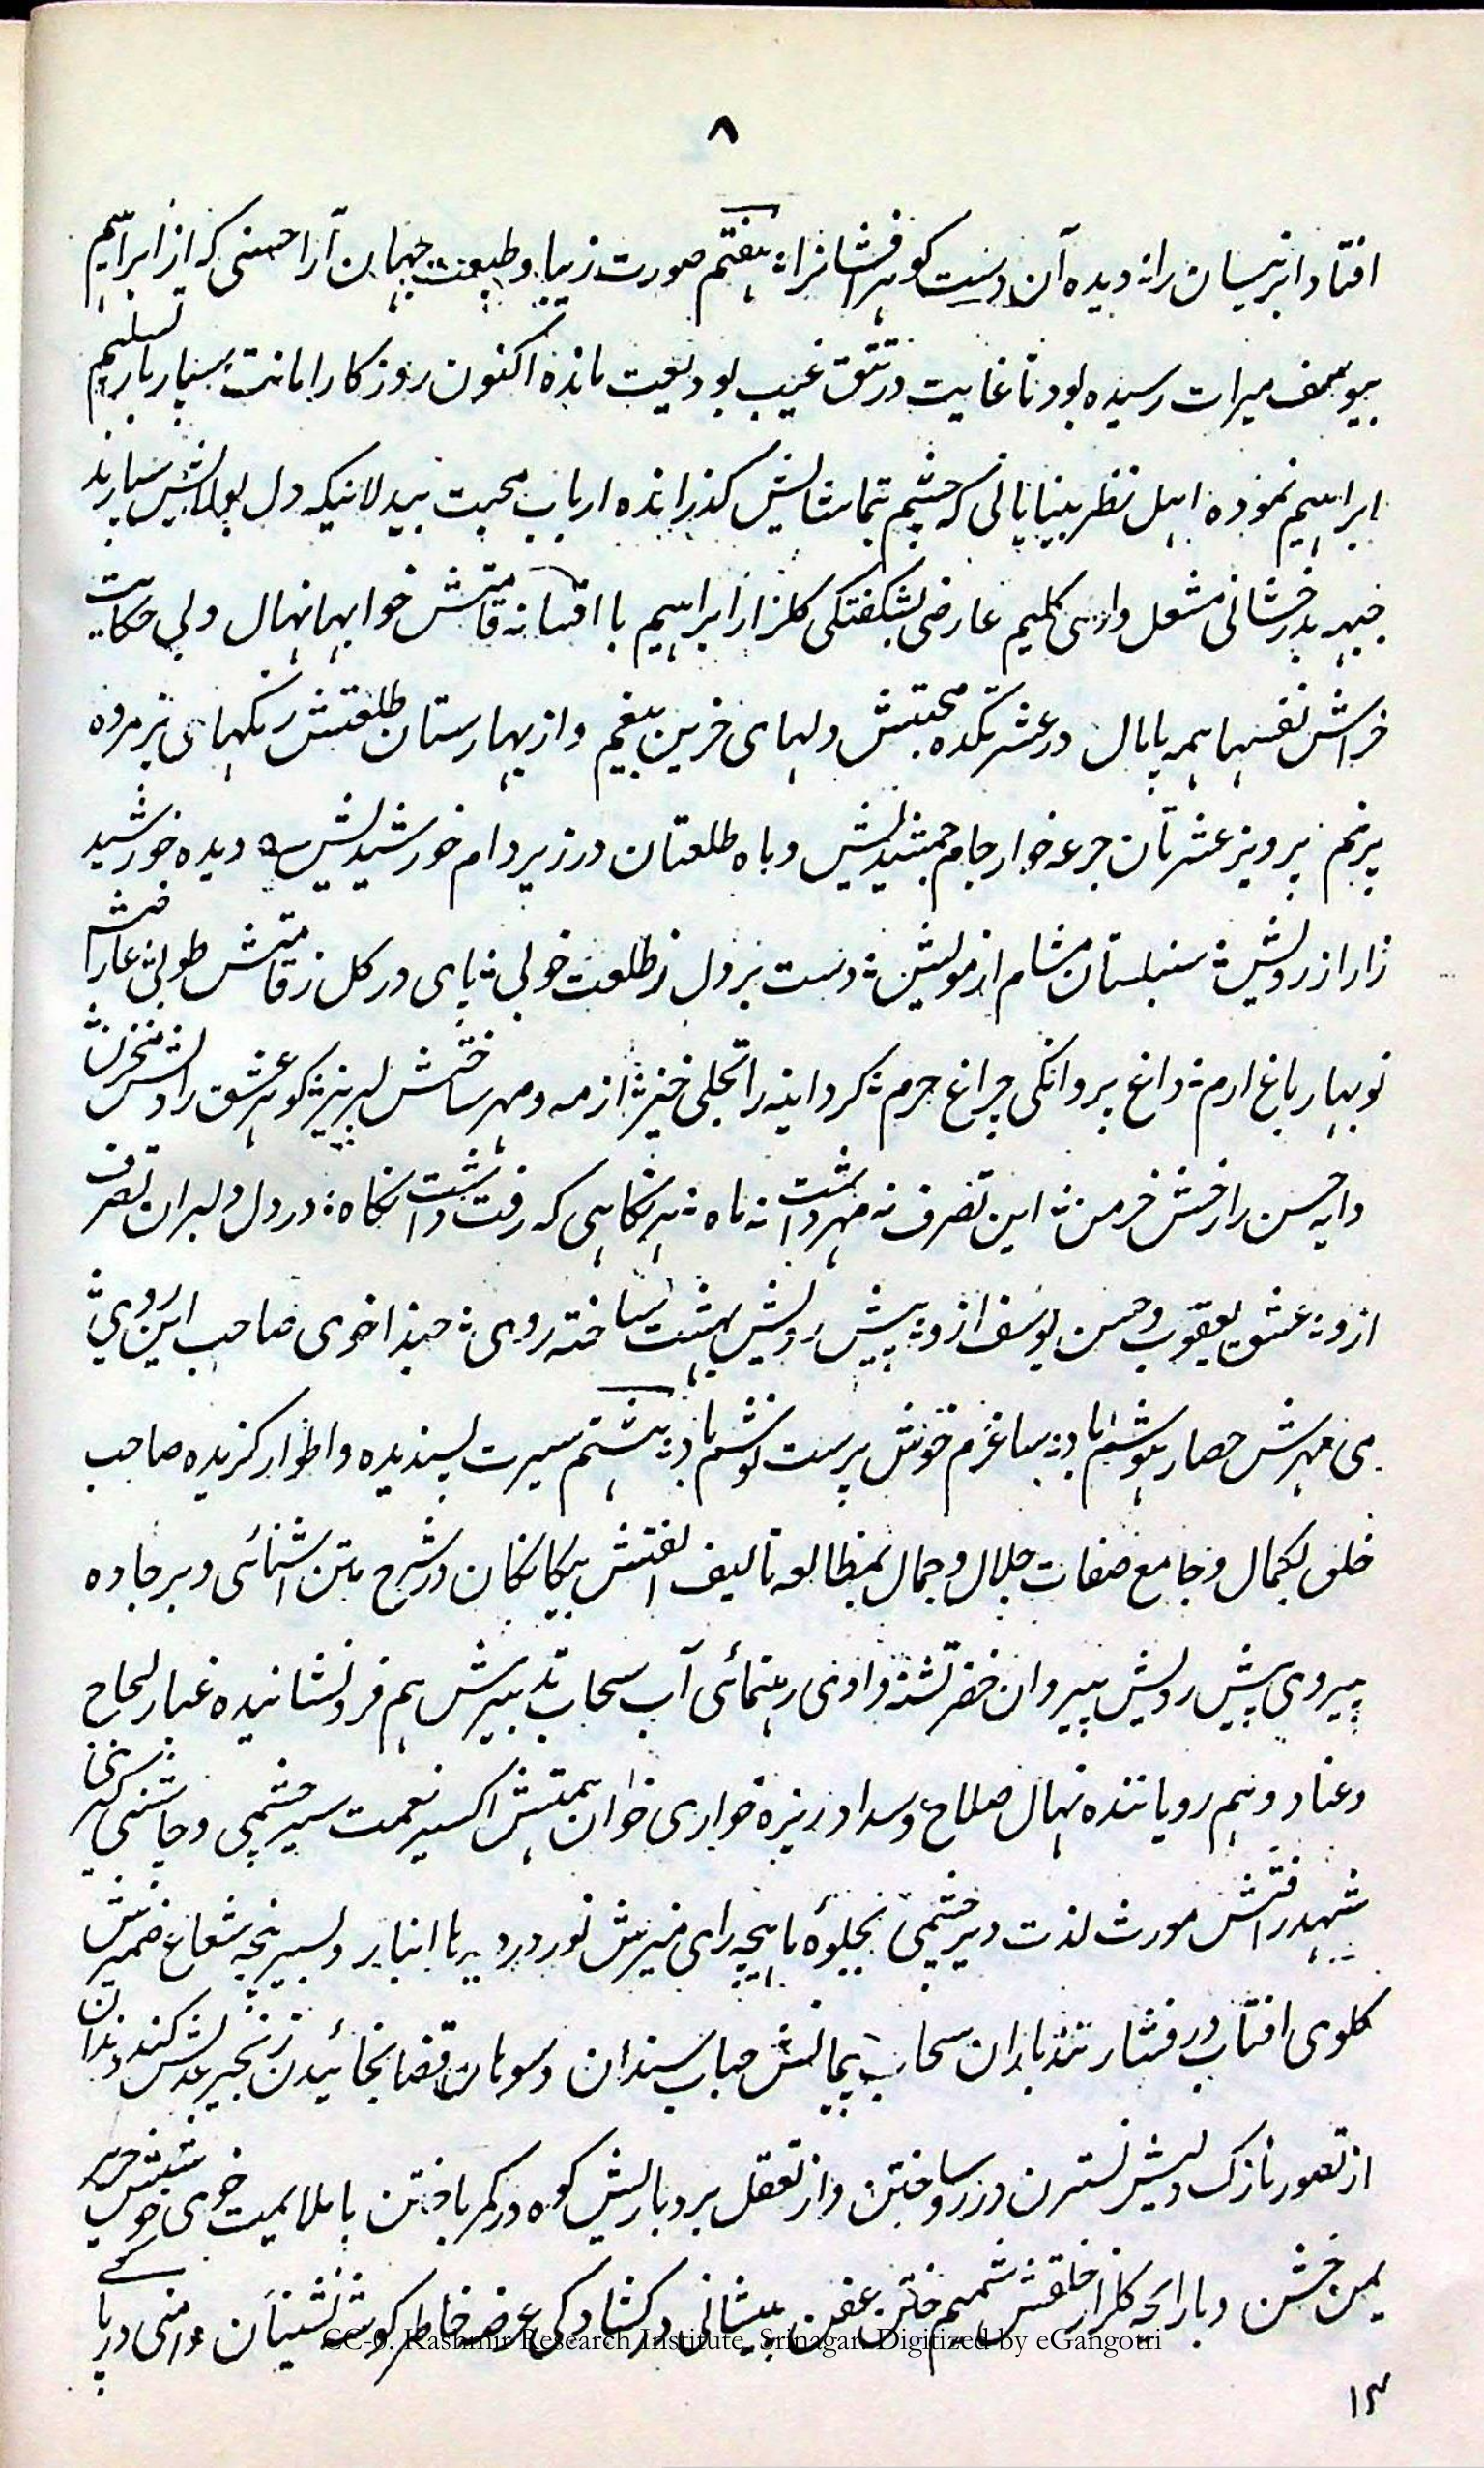 ۸
افتاد ابر نیسان را نه دیده آن دست گوهر افشانرا؛ هفتم صورت زیبا و طلعت جهان آرا حسنی که از ابراهیم
بیوسف میراث رسیده بود تا غایت در تتق غیب بودیعت مانده اکنون روزکار امانت سپار بار تسلیم
ابراهیم نموده اهل نظر بینایانی که چشم تماشایش کذرانده ارباب محبت بیدلانیکه دل بولایش سپارند
جبهه بدرخشانی مشعل وادی کلیم عارض بشکفتکی کلزار ابراهیم با افسانه قامتش خوابها نهال و بی حکایت
خراش نفسها همه پامال در عشرتکده محبتش دلهای حزین بیغم و از بهارستان طلعتش رنکهای پژمرده
پرنم پرویز عشرتان جرعه خوار جام جمشیدیش و ماه طلعتان در زیر دام خورشیدیش دیده خورشید
زار از رویش؛ سنبلستان مشام از مویش؛ دست بر دل ز طلعت خوبی؛ پای در کل ز قامتش طوبی؛ عارضش
نوبهار باغ ارم؛ داغ پروانکی چراغ حرم؛ کرد اینه را تجلی خیز؛ از مه و مهر ساختش لبریز؛ کوهر عشق را دلش مخزن؛
دایه حسن را رخش خرمن؛ این تصرف نه مهر داشت نه ماه؛ هر نکاهی که رفت داشت نکاه؛ در دل دلبران تصرف
ازو؛ عشق یعقوب و حسن یوسف ازو؛ پیش رویش بهشت ساخته روی؛ حبذا خوی صاحب این روی؛
می مهرش حصار هوشم باد؛ بساغرم خونش پرست نوشم باد؛ هشتم سیرت پسندیده و اطوار کزیده صاحب
خلق بکمال و جامع صفات جلال و جمال بمطالعه تالیف الفتش بیکانکان در شرح متن اشنائی و بر جاده
پیروی پیش رویش پیروان خضر تشنه وادی رهنمائی آب سحاب تدبیرش هم فرو نشانیده غبار لجاج
و عناد و هم رویاننده نهال صلاح و سداد ریزه خواری خوان همتش اکسیر نعمت سیر چشمی و چاشنی کیری
شهد رافتش مورث لذت دیر خشمی بجلوه ماهچه رای منیرش نور در دریا انبار و بسر پنجه شعاع ضمیرش
کلوی افتاب در فشار تند باران سحاب پیمانش حباب سندان و سوهان قضا بخائیدن زنجیر عدلش کند دندان
از تصور نازک دلیش نسترن در رسا وختن و از تعقل بردباریش کوه در کمر باختن با ملایمت خوی خوشش حریر
یمن خشن و با رایحه کلزار خلقش شمیم ختن عفن پیشانی در کشادکی عرض خاطر کوشه نشینان دامنی در پا
۱۳
CC-0. Kashmir Research Institute, Srinagar. Digitized by eGangotri